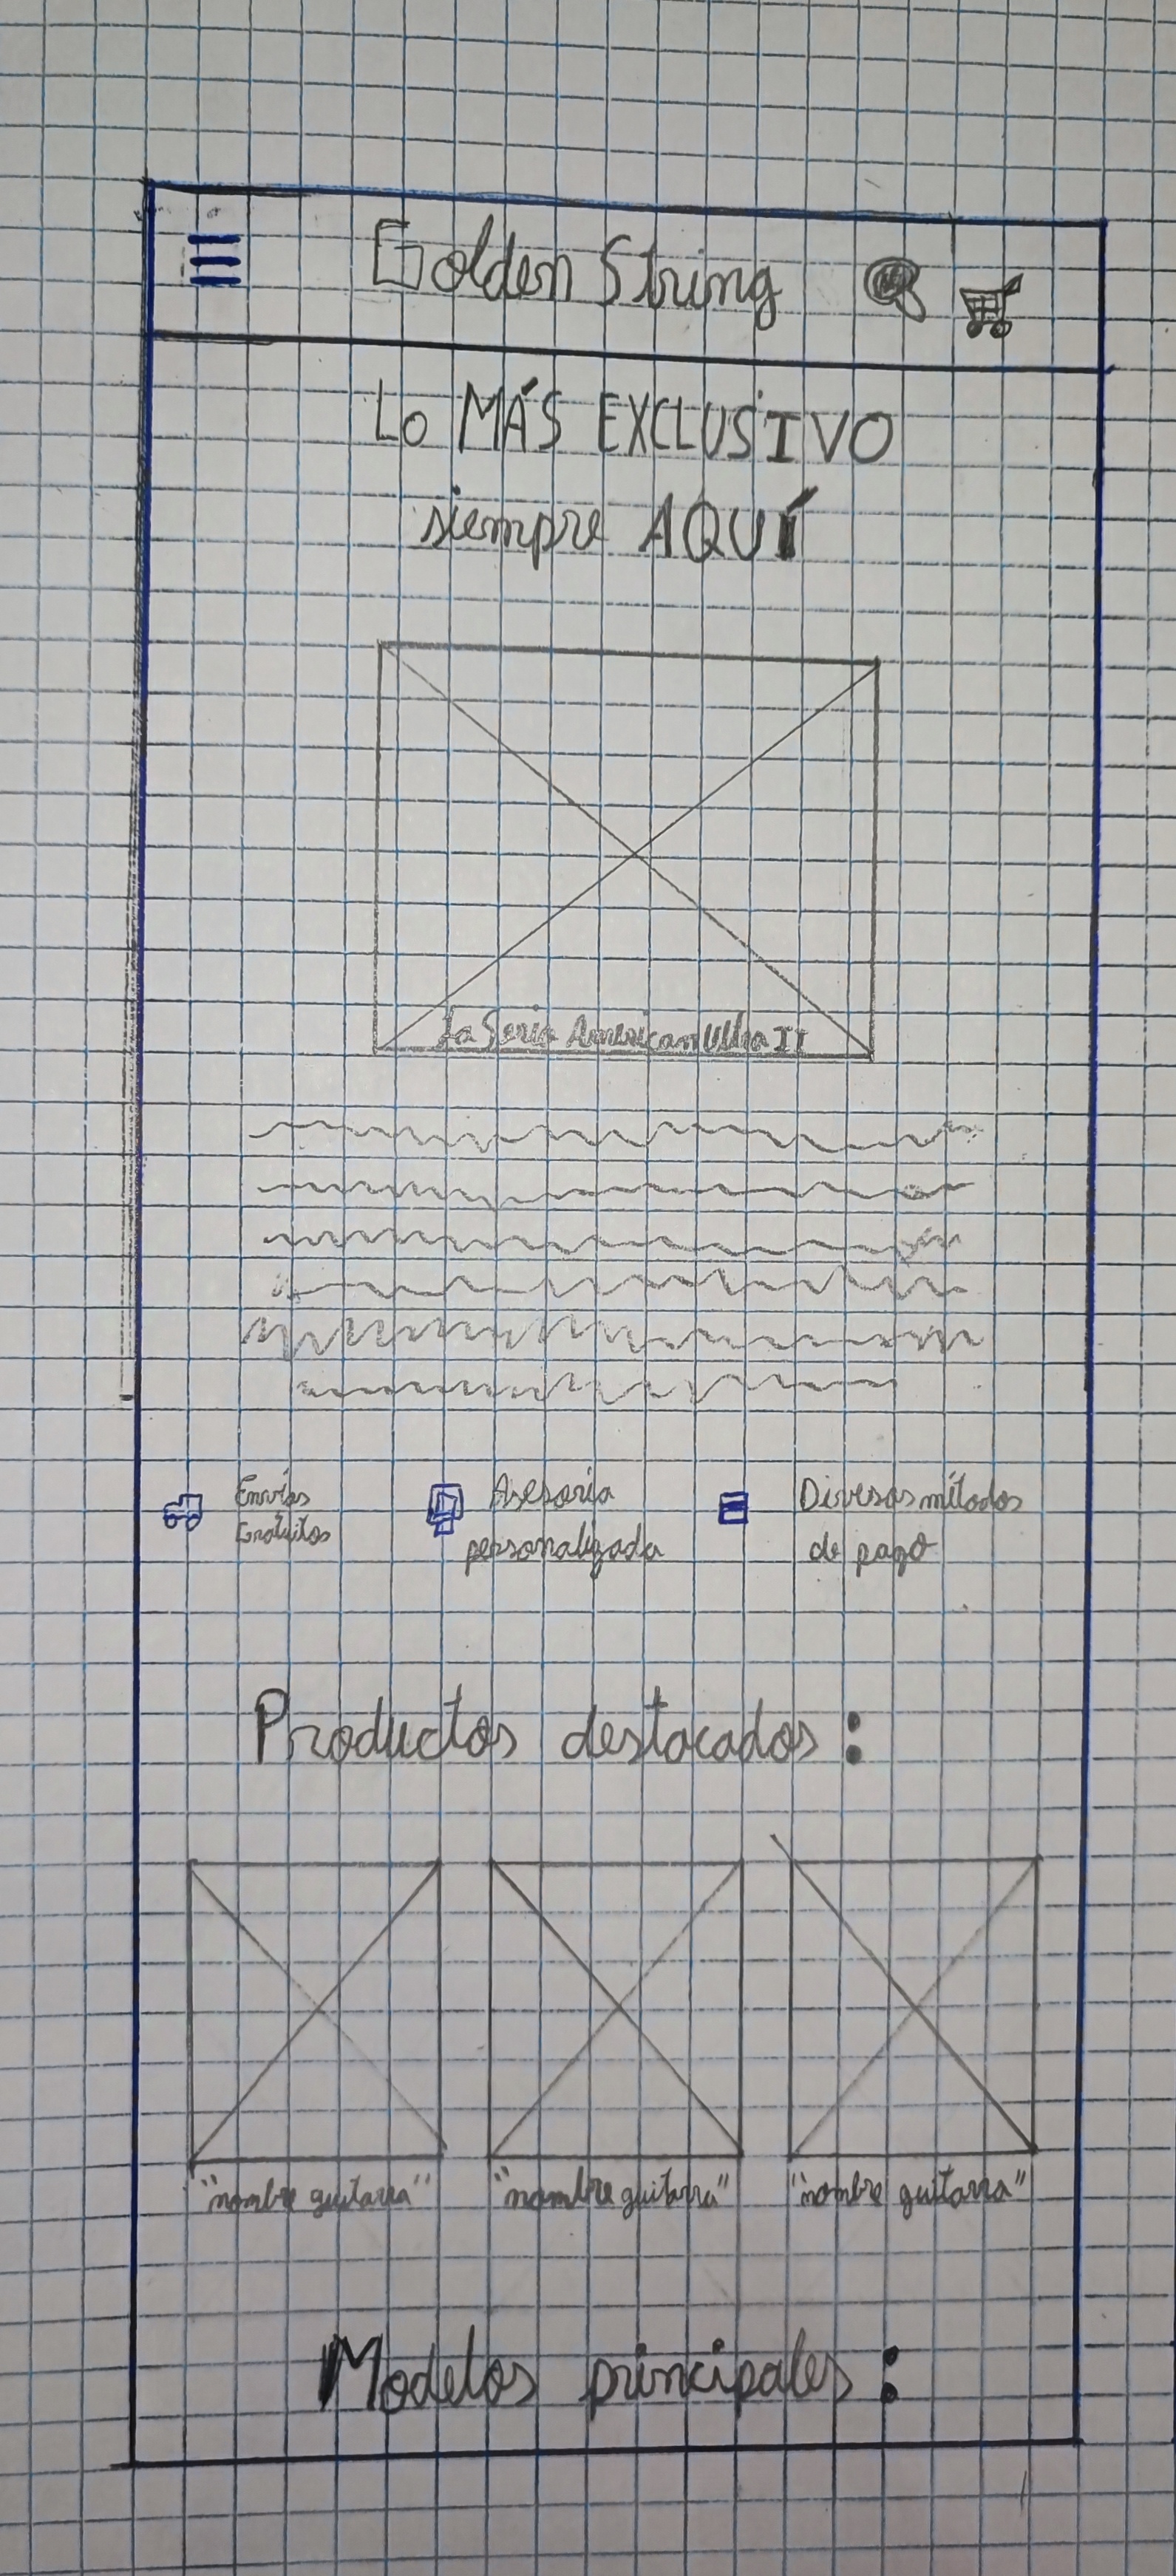 Golden String
Lo MÁS EXCLUSIVO
siempre AQUÍ
La Serie American Ultra II
Envíos
Gratuitos
Asesoría
personalizada
Diversos métodos
de pago
Productos destacados:
"nombre guitarra"
"nombre guitarra"
"nombre guitarra"
Modelos principales: